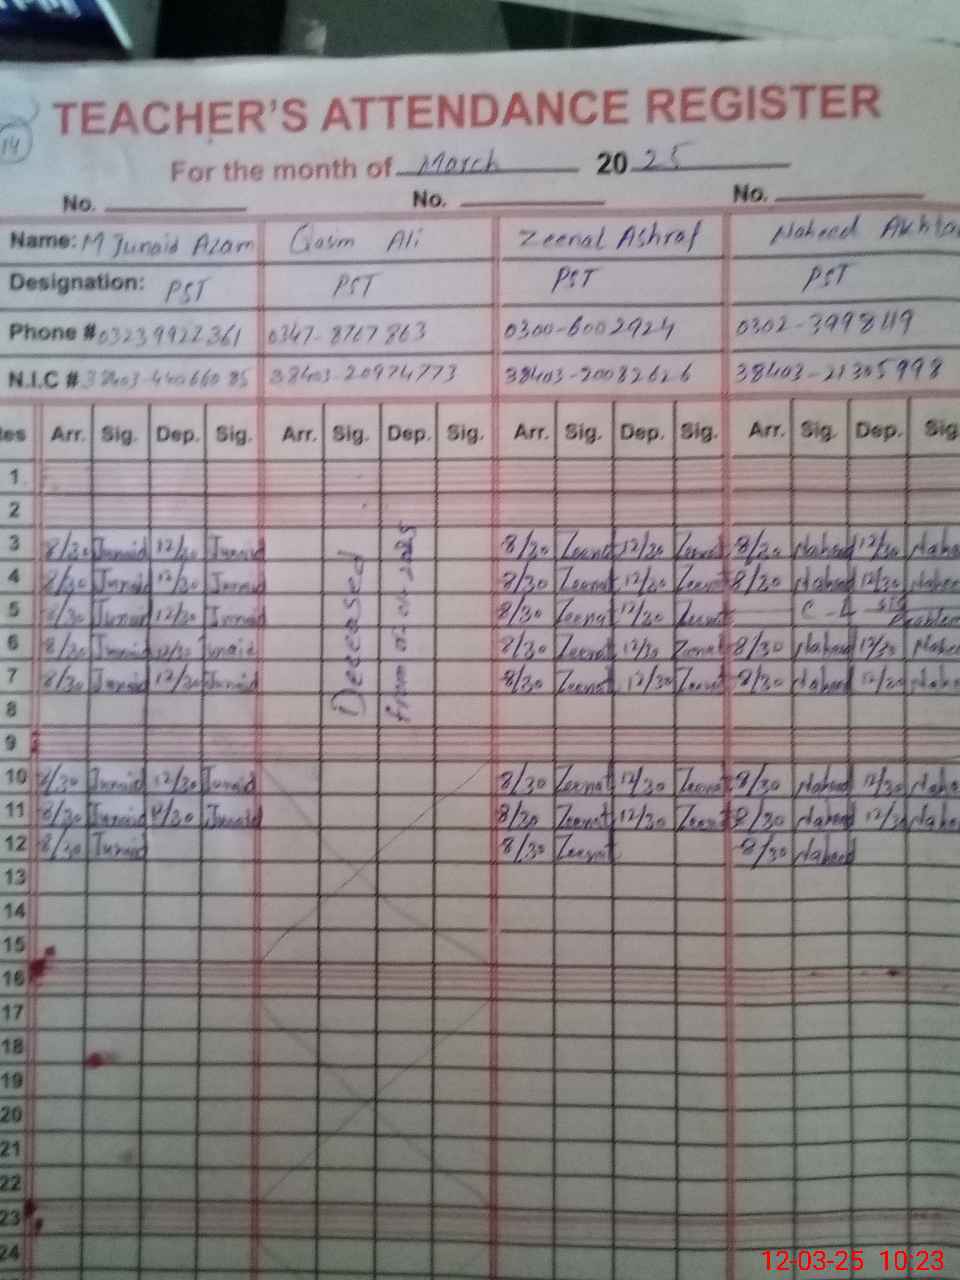 14
TEACHER'S ATTENDANCE REGISTER
For the month of March 2025
No. No. No.
Name: M Junaid Azam Qasim Ali Zeenat Ashraf Naheed Akhta
Designation: PST PST PST PST
Phone # 03239922361 0347-8767863 0300-6002924 0302-3998119
N.I.C # 38403-44066085 38403-20974773 38403-20082626 38403-21305998
tes Arr. Sig. Dep. Sig. Arr. Sig. Dep. Sig. Arr. Sig. Dep. Sig. Arr. Sig. Dep. Sig
1
2
3 8/30 Junaid 12/30 Junaid 8/30 Zeenat 12/30 Zeenat 8/30 Naheed 12/30 Nahe
4 8/30 Junaid 12/30 Junaid 8/30 Zeenat 12/30 Zeenat 8/30 Naheed 12/30 Nahee
5 8/30 Junaid 12/30 Junaid 8/30 Zeenat 12/30 Zeenat C-L Problem
6 8/30 Junaid 12/30 Junaid 8/30 Zeenat 12/30 Zeenat 8/30 Naheed 12/30 Nahee
7 8/30 Junaid 12/30 Junaid 8/30 Zeenat 12/30 Zeenat 8/30 Naheed 12/30 Nahe
Deceased
8
9
10 8/30 Junaid 12/30 Junaid 8/30 Zeenat 12/30 Zeenat 8/30 Naheed 12/30 Nahe
11 8/30 Junaid 12/30 Junaid 8/30 Zeenat 12/30 Zeenat 8/30 Naheed 12/30 Nahe
12 8/30 Junaid 8/30 Zeenat 8/30 Naheed
13
14
15
16
17
18
19
20
21
22
23
24
12-03-25 10:23